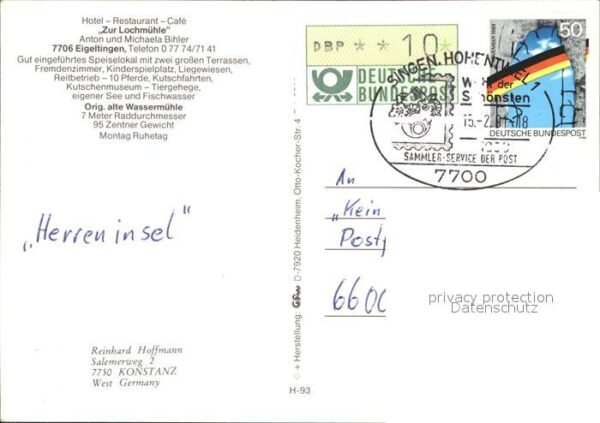 Hotel – Restaurant – Café
„Zur Lochmühle"
Anton und Michaela Bihler
7706 Eigeltingen, Telefon 0 77 74/71 41
Gut eingeführtes Speiselokal mit zwei großen Terrassen,
Fremdenzimmer, Kinderspielplatz, Liegewiesen,
Reitbetrieb – 10 Pferde, Kutschfahrten,
Kutschenmuseum – Tiergehege,
eigener See und Fischwasser
Orig. alte Wassermühle
7 Meter Raddurchmesser
95 Zentner Gewicht
Montag Ruhetag
„Herreninsel"
Reinhard Hoffmann
Salemerweg 2
7750 KONSTANZ
West Germany
+ Herstellung: D-7920 Heidenheim, Otto-Kocher-Str. 4
H-93
DBP * * 10 *
DEUTSCHE
BUNDESPOST
50
DEUTSCHE BUNDESPOST
SINGEN, HOHENTWIEL 1
der
Schönsten
SAMMLER-SERVICE DER POST
7700
An
„Kein
Post
6600
privacy protection
Datenschutz